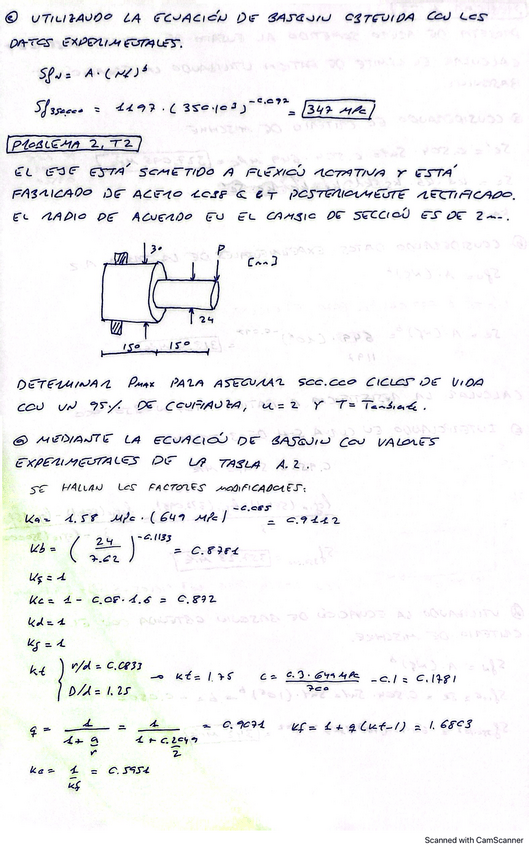 © UTILIZANDO LA ECUACIÓN DE BASQUIN OBTENIDA CON LOS
DATOS EXPERIMENTALES.
Sf_N = A · (N)^b
Sf_350.000 = 1197 · (350·10³)^-0.092 = 347 MPa
PROBLEMA 2, T2
EL EJE ESTÁ SOMETIDO A FLEXIÓN ROTATIVA Y ESTÁ
FABRICADO DE ACERO 1038 Q&T POSTERIORMENTE RECTIFICADO.
EL RADIO DE ACUERDO EN EL CAMBIO DE SECCIÓN ES DE 2mm.
30
P
[mm]
24
150 150
DETERMINAR Pmax PARA ASEGURAR 500.000 CICLOS DE VIDA
CON UN 95% DE CONFIANZA, n=2 Y T=Tambiente.
ⓐ MEDIANTE LA ECUACIÓN DE BASQUIN CON VALORES
EXPERIMENTALES DE LA TABLA A.2.
SE HALLAN LOS FACTORES MODIFICADORES:
Ka = 1.58 MPa · (649 MPa)^-0.085 = 0.9112
Kb = (24/7.62)^-0.1133 = 0.8781
Kc = 1 - 0.08 · 1.6 = 0.872
Kd = 1
Kt { r/d = 0.0833 → Kt = 1.75 C = 0.3 · 649 MPa / 700 - 0.1 = 0.1781
D/d = 1.25
q = 1/(1 + a/r) = 1/(1 + 0.2049/2) = 0.9071 Kf = 1 + q (Kt - 1) = 1.6803
Ke = 1/Kf = 0.5951
Scanned with CamScanner